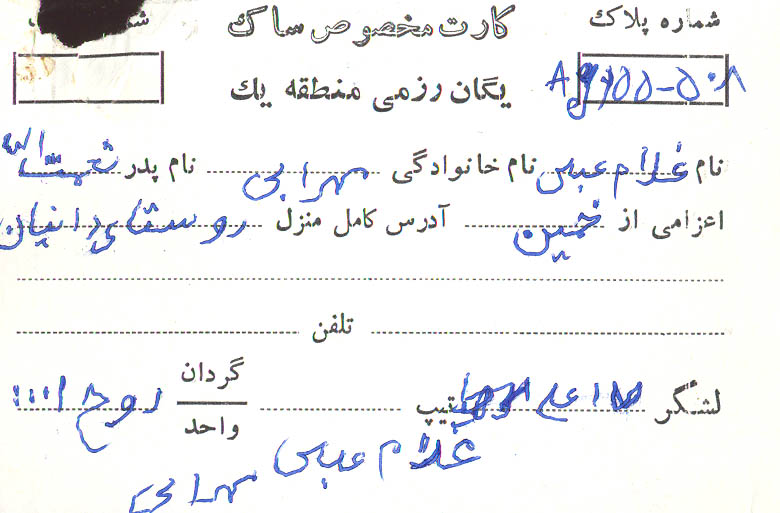 شماره پلاک کارت مخصوص ساک
یگان رزمی منطقه یک
نام غلامعباس نام خانوادگی سهرابی نام پدر
اعزامی از خمین آدرس کامل منزل روستای دانیان
تلفن
لشگر ۱۷ علی تیپ گردان واحد روح ا...
غلامعباس سهرابی